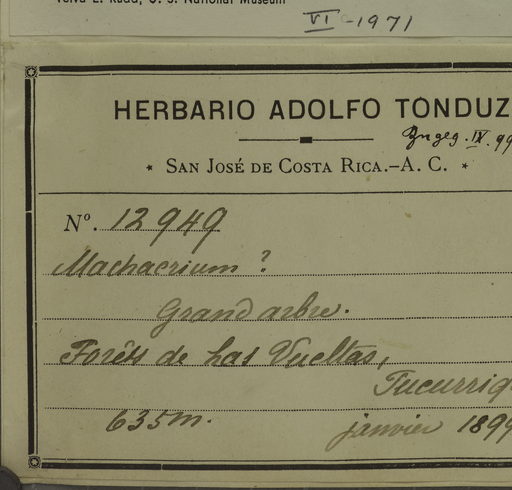 Velva E. Rudd, U. S. National Museum
VI-1971
HERBARIO ADOLFO TONDUZ
IX. 99
* SAN JOSÉ DE COSTA RICA.–A. C. *
Nº. 12949
Machaerium ?
Grand arbre.
Forêts de Las Vueltas,
Tucurriq
635m. janvier 1899